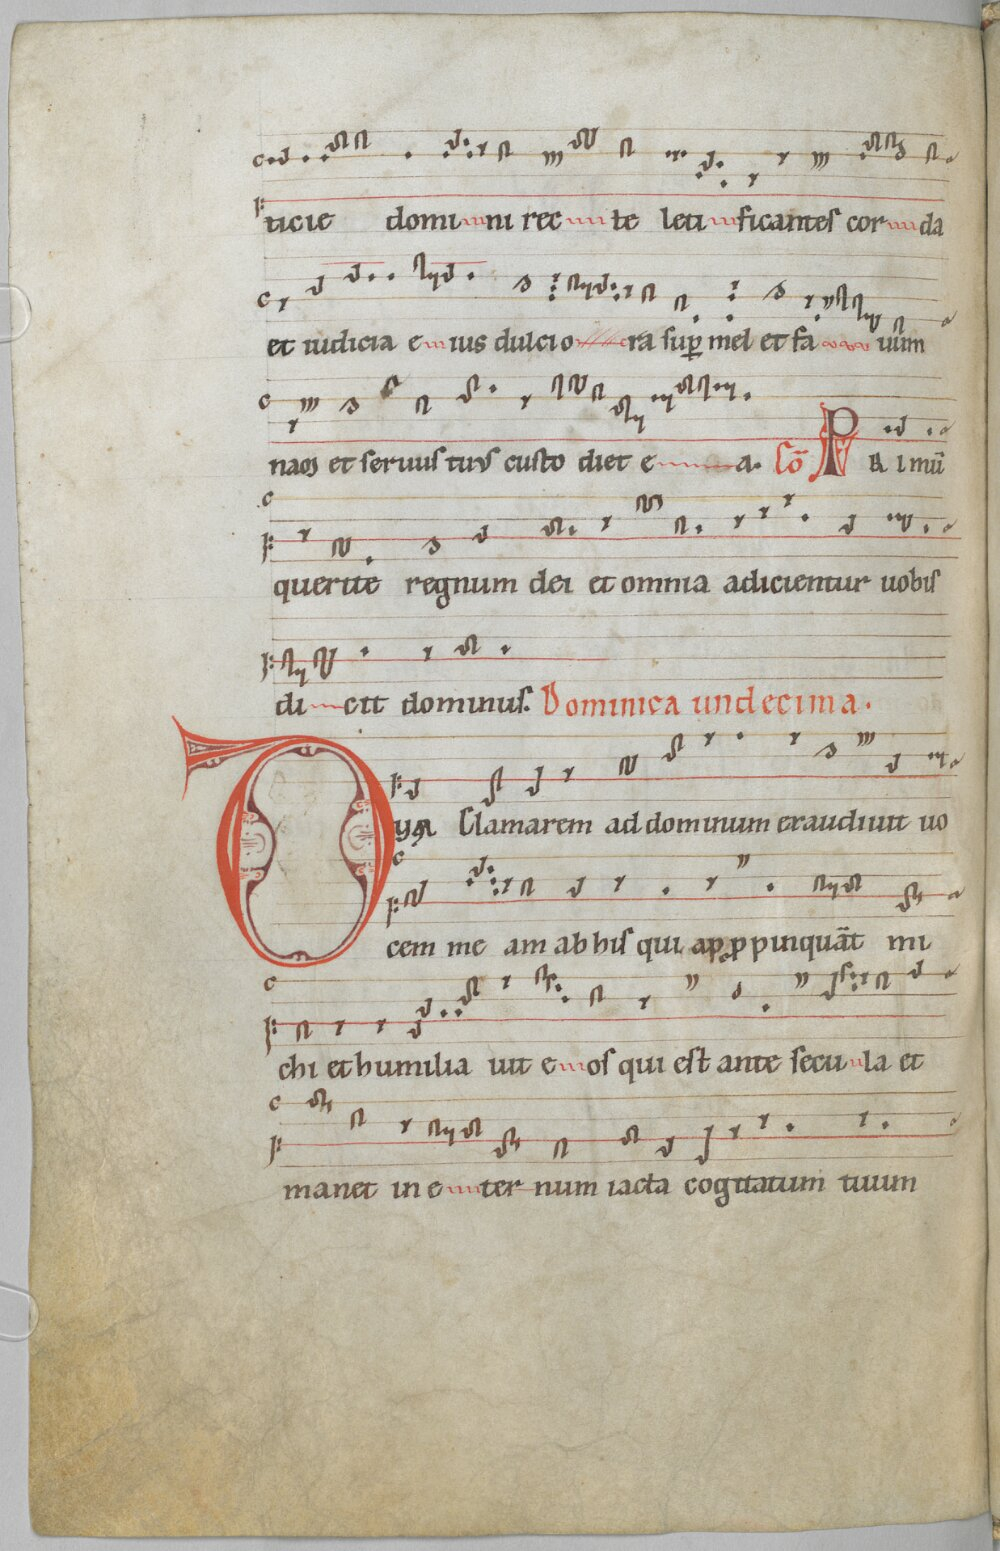 ticie domini recte letificantes corda
et iudicia eius dulciora sup mel et fauum
nam et seruus tuus custodiet ea. Cō PRImū
querite regnum dei et omnia adicientur uobis
dicit dominus. Dominica undecima.
DVM Clamarem ad dominum exaudiuit uo
cem meam ab his qui appropinquāt mi
chi et humiliauit eos qui est ante secula et
manet in eternum iacta cogitatum tuum